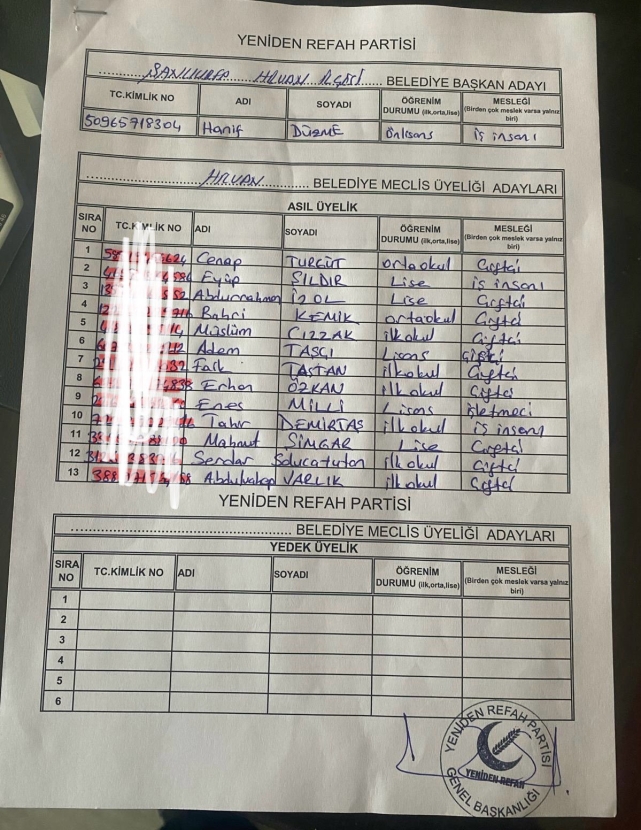 YENİDEN REFAH PARTİSİ
ŞANLIURFA HİLVAN İLÇESİ BELEDİYE BAŞKAN ADAYI
TC.KİMLİK NO ADI SOYADI ÖĞRENİM DURUMU (ilk,orta,lise) MESLEĞİ (Birden çok meslek varsa yalnız biri)
Hanif DÜZME Önlisans İş insanı
HİLVAN BELEDİYE MECLİS ÜYELİĞİ ADAYLARI
ASIL ÜYELİK
SIRA NO TC.KİMLİK NO ADI SOYADI ÖĞRENİM DURUMU (ilk,orta,lise) MESLEĞİ (Birden çok meslek varsa yalnız biri)
1 Cenap TURGUT ortaokul Çiftçi
2 Eyüp ŞILDIR Lise iş insanı
3 Abdurrahman İZOL Lise Çiftçi
4 Bahri KEMİK ortaokul Çiftçi
5 Müslüm CIZZAK ilkokul Çiftçi
6 Adem TAŞÇI Lisans Çiftçi
7 Faik TAŞTAN ilkokul Çiftçi
8 Erhan ÖZKAN ilkokul Çiftçi
9 Enes MİLLİ Lisans işletmeci
10 Tahir DEMİRTAŞ ilkokul iş insanı
11 Mahmut SİMGAR Lise Çiftçi
12 Serdar ilkokul Çiftçi
13 Abdulvahap VARLIK ilkokul Çiftçi
YENİDEN REFAH PARTİSİ
BELEDİYE MECLİS ÜYELİĞİ ADAYLARI
YEDEK ÜYELİK
SIRA NO TC.KİMLİK NO ADI SOYADI ÖĞRENİM DURUMU (ilk,orta,lise) MESLEĞİ (Birden çok meslek varsa yalnız biri)
1
2
3
4
5
6
YENİDEN REFAH PARTİSİ
YENİDEN REFAH
GENEL BAŞKANLIĞI